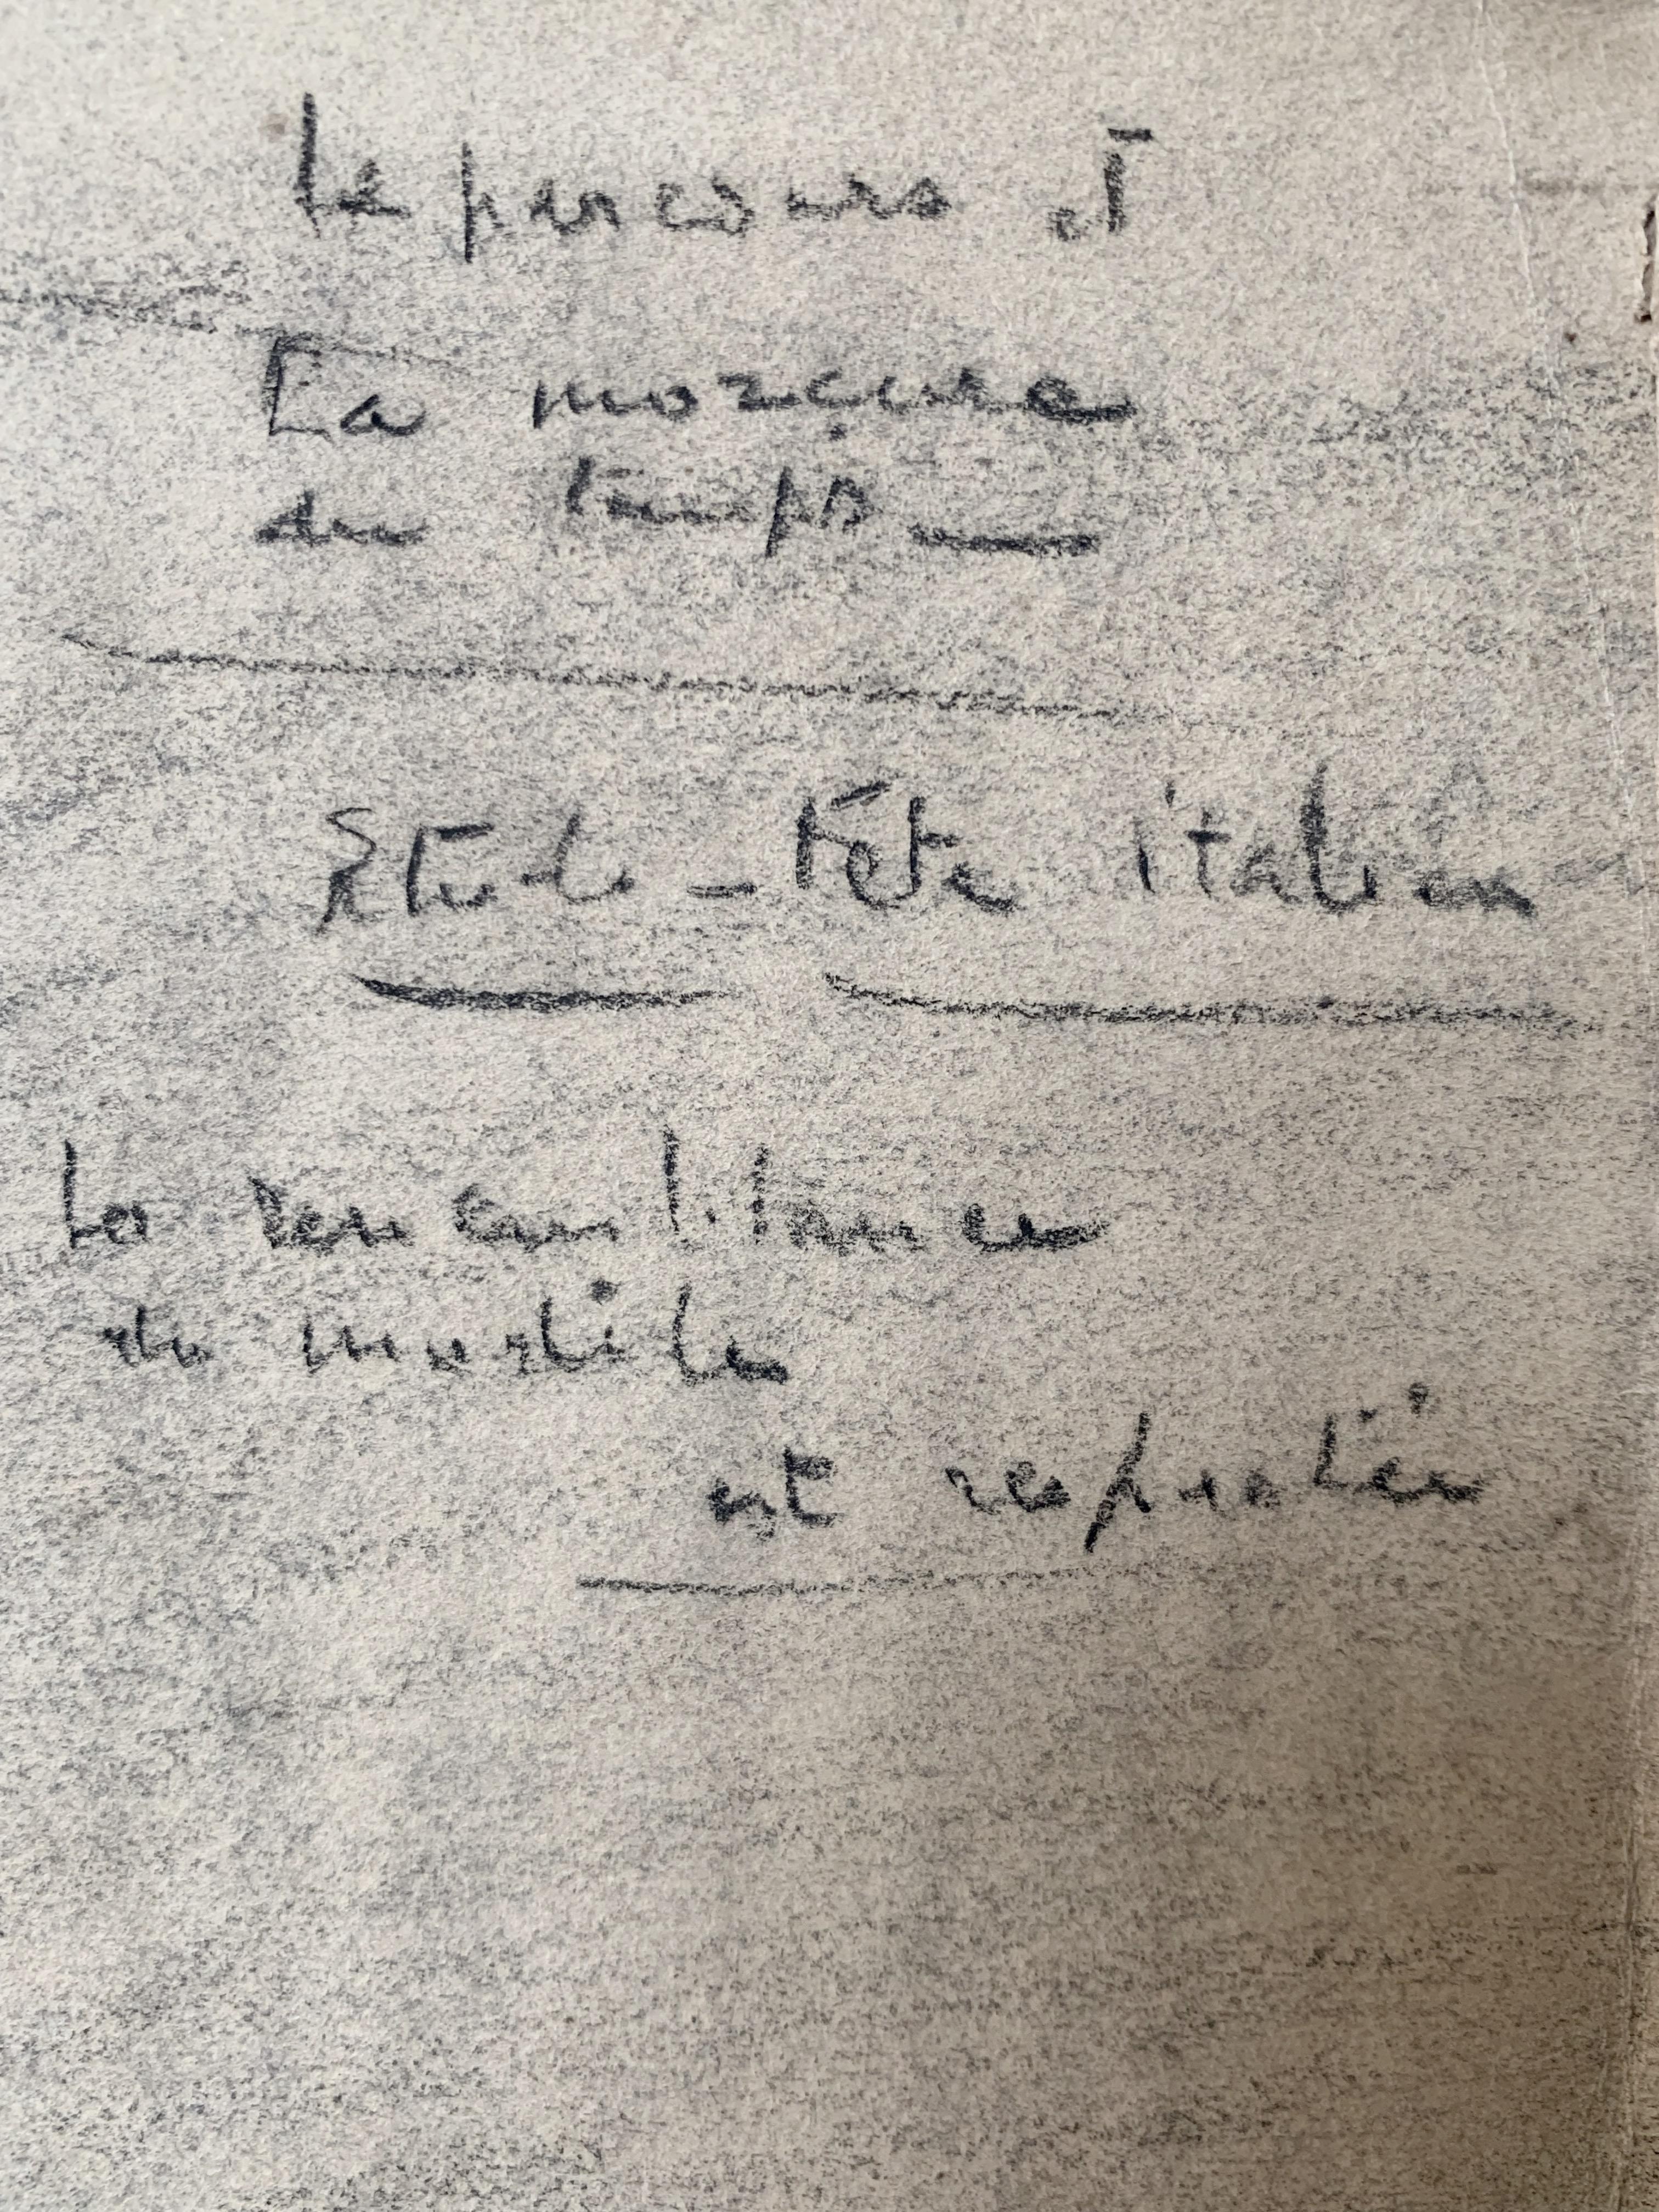 Le parcours et
La morçure
du temps
Etude - Tête italien
La ressemblance
du modèle
est respectée